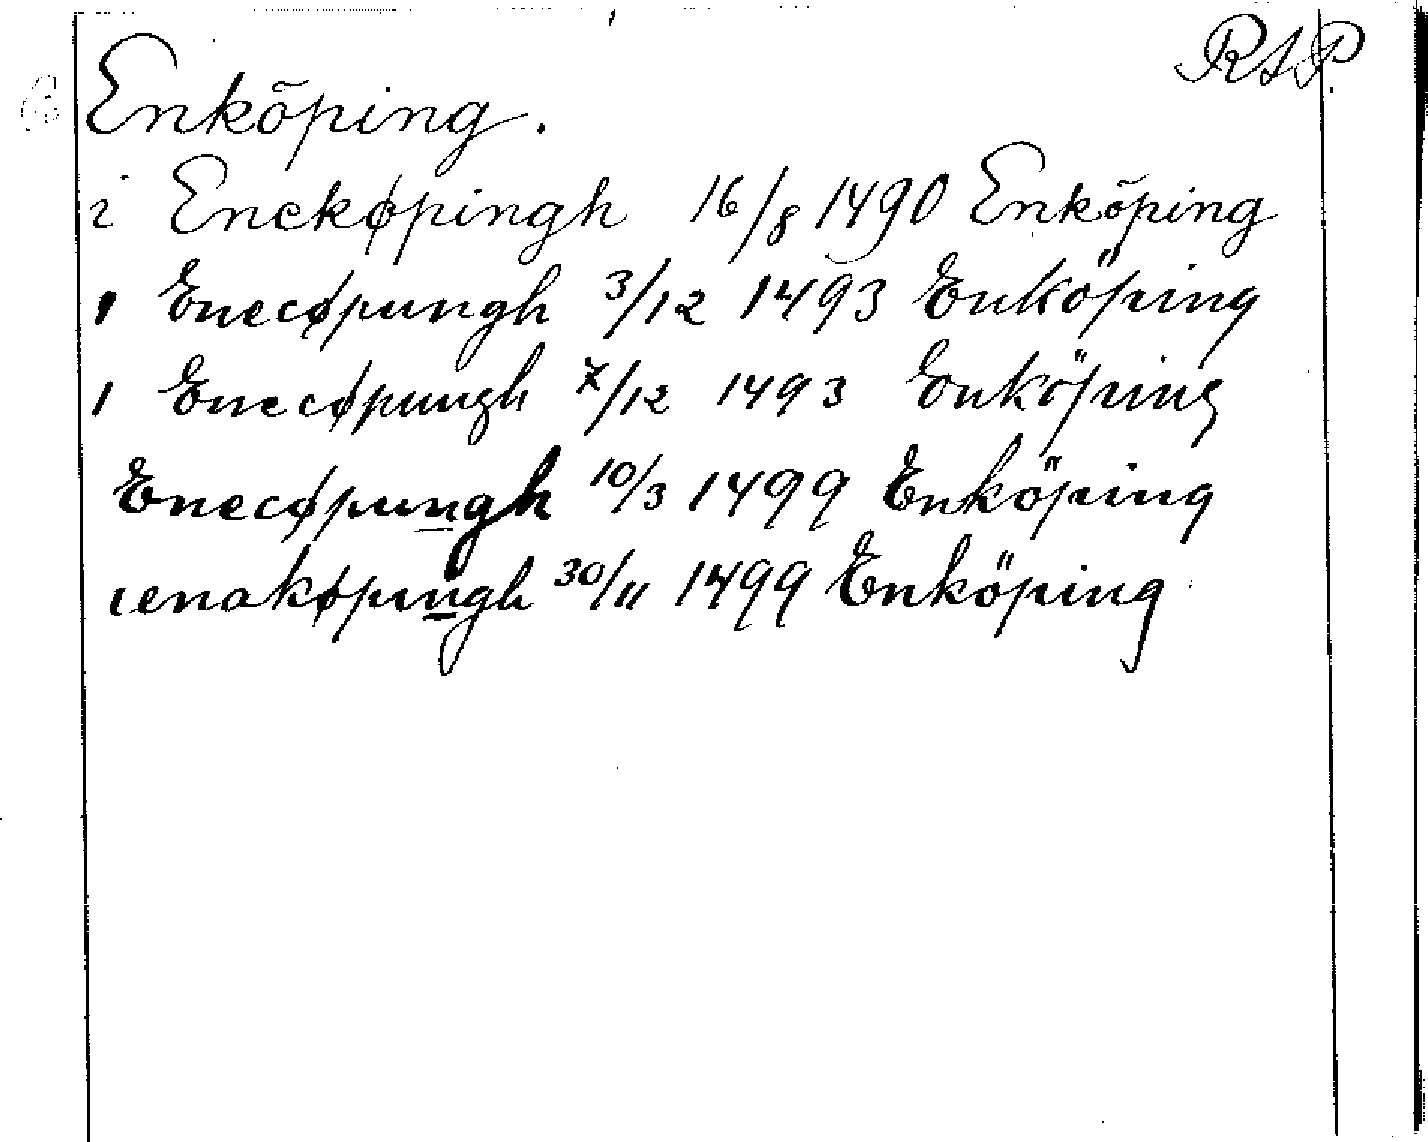 RAP.
Enköping.
i Enekøpingh 16/8 1490 Enköping
ı Enecøpıngh 3/12 1493 Enköping
ı Enecøpıngh 7/12 1493 Enköping
Enecøpıngh 10/3 1499 Enköping
ı enakøpıngh 30/11 1499 Enköping